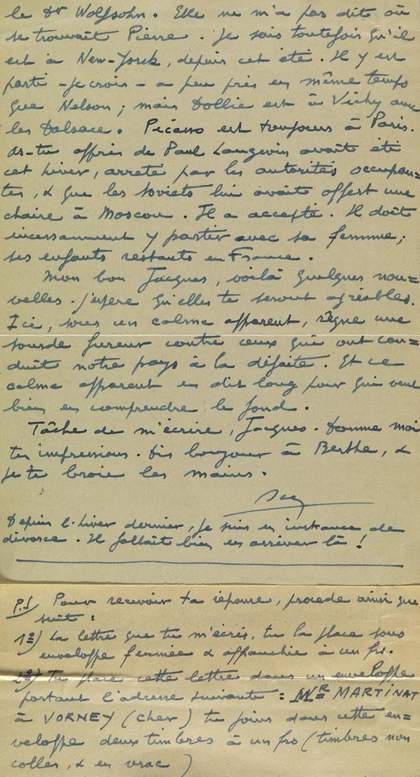 le Dr Wolfsohn. Elle ne m'a pas dit où
se trouvait Pierre. Je sais toutefois qu'il
est à New-York, depuis cet été. Il y est
parti - je crois - à peu près en même temps
que Nelson; mais Dollie est à Vichy avec
les Dalsace. Picasso est toujours à Paris.
As-tu appris de Paul Langevin avait été
cet hiver, arrêté par les autorités occupan-
tes, & que les soviets lui avait offert une
chaire à Moscou. Il a accepté. Il doit
incessamment y partir avec sa femme;
ses enfants restants en France.
Mon bon Jacques, voilà quelques nou-
velles. J'espère qu'elles te seront agréables.
Ici, sous un calme apparent, règne une
sourde fureur contre ceux qui ont con-
duit notre pays à la défaite. Et ce
calme apparent en dit long pour qui veut
bien en comprendre le fond.
Tâche de m'écrire, Jacques. Donne moi
tes impressions. Dis bonjour à Berthe, &
je te broie les mains.
Depuis l'hiver dernier, je suis en instance de
divorce. Il fallait bien en arriver là!
P.S Pour recevoir ta réponse, procède ainsi que
suit:
1º) La lettre que tu m'écris, tu la place sous
enveloppe fermée & affranchie à un fr.
2º) Tu place cette lettre dans un enveloppe
portant l'adresse suivante: Mr MARTINAT
à VORNEY (Cher) tu joins dans cette en-
veloppe deux timbres à un fr (timbres non
collés, & en vrac)